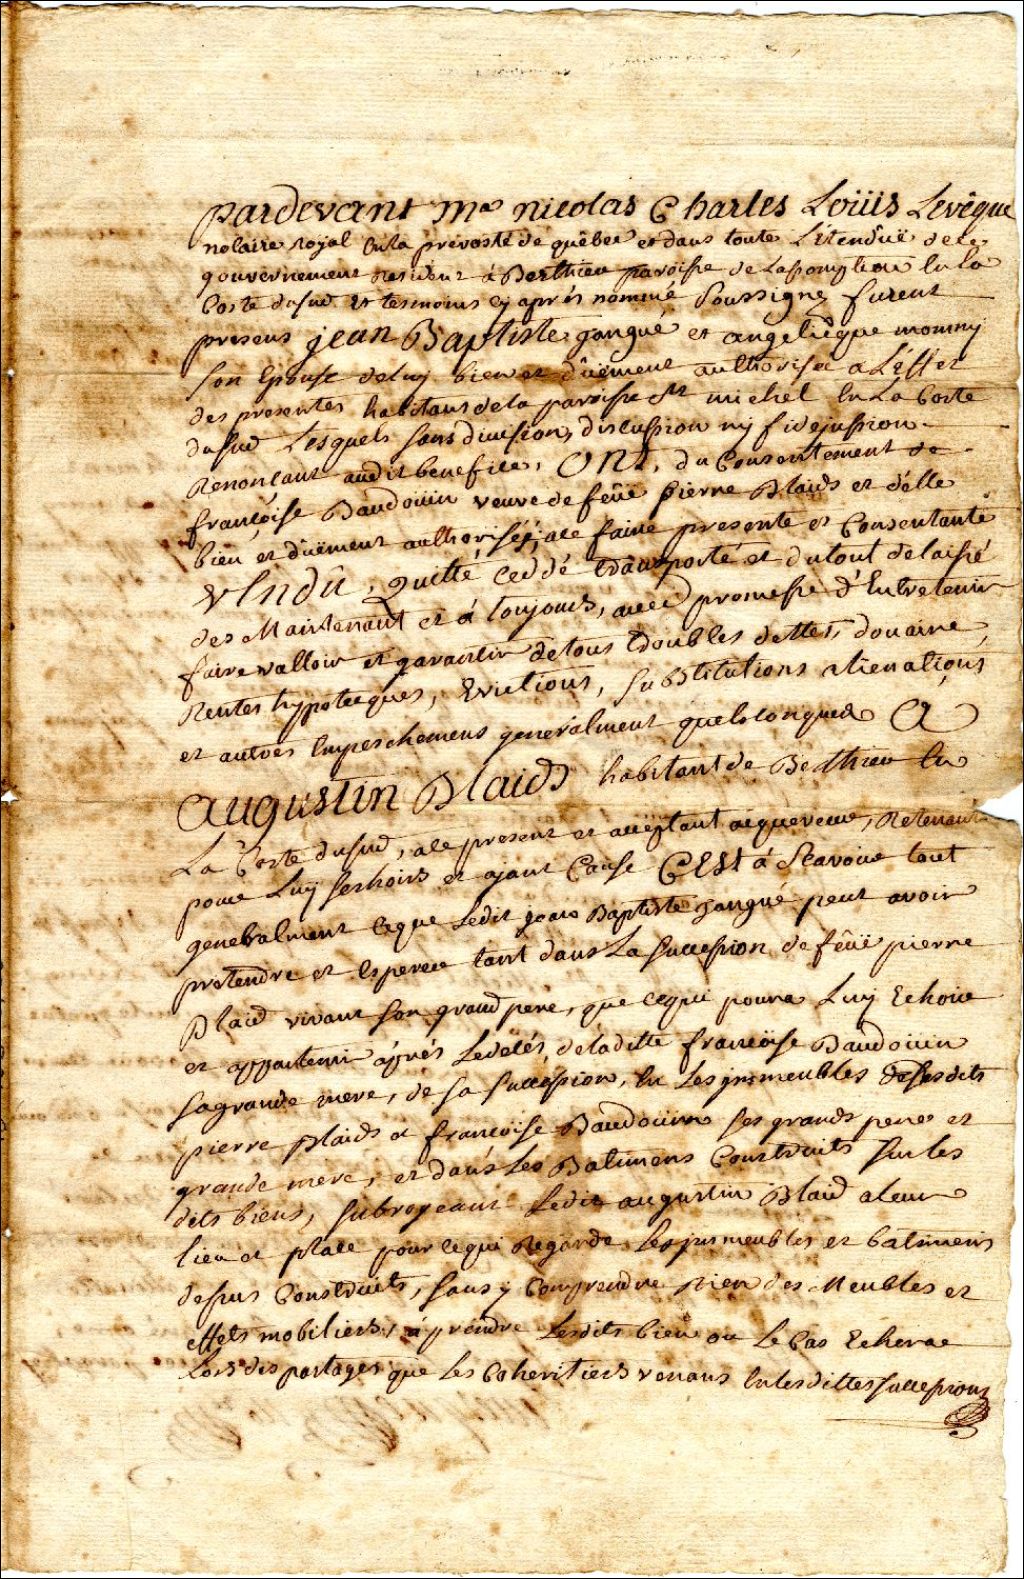 pardevant Me nicolas Charles Loüis Levêque
notaire royal En la prevosté de quêbec et dans toute L'étenduë de ce
gouvernement Resident à Berthieu paroisse de Lassomption En La
Coste du sud Et tesmoins cy aprés nommé soussignez furent
presens jean Baptiste gangué et angelicque mommy
son Epouse de Luy bien et düement authorisée a L'effet
des presentes habitans de la paroisse St michel En La Coste
du sud Lesquels sans division, discussion ny fidejussion
Renonçant audit benefice, ONT, du Consentement de
françoise Baudoüin veuve de feüe pierre Blaids et d'elle
bien et düement authoriséé, a ce faire presente et Consentante
vEndu, Quitté, ceddé transporté et du tout delaissé
des Maintenant et à toujours, avec promesse d'Entretenir
faire valloir et garantir de tous troubles dettes, douaire,
Rentes hypotecques, Evictions, substitutions alienations
et autres Empeschemens generalment quelsconques A
Augustin Blaids habitant de Berthieu En
La Coste du sud, a ce present et acceptant acquereur, Retenant
pour Luy ses hoirs et ajant Cause CEST à Scavoir tout
generalment ce que Ledit jean Baptiste gangué peut avoir
pretendre et Esperer tant dans La succession de feüe pierre
Blaid vivant son grand pere, que ce qui poura Luy Echoir
et appartenir aprés Le decés de la ditte françoise Baudoüin
sa grande mere, de sa succession, En Les immeubles desdits
pierre Blaids et françoise Baudoüin ses grands pere et
grande mere, et dans Les Batimens Construits sur les
dits biens, subrogeant Ledit augustin Blaid a leur
lieu et place pour ce qui Regarde Les immeubles et batimens
dessus Construits, sans y Comprendre rien des Meubles et
effets mobiliers, à prendre Lesdits bien ou Le Cas Echerae
Lors des partages que Les Coheritiers venans En les dittes successions